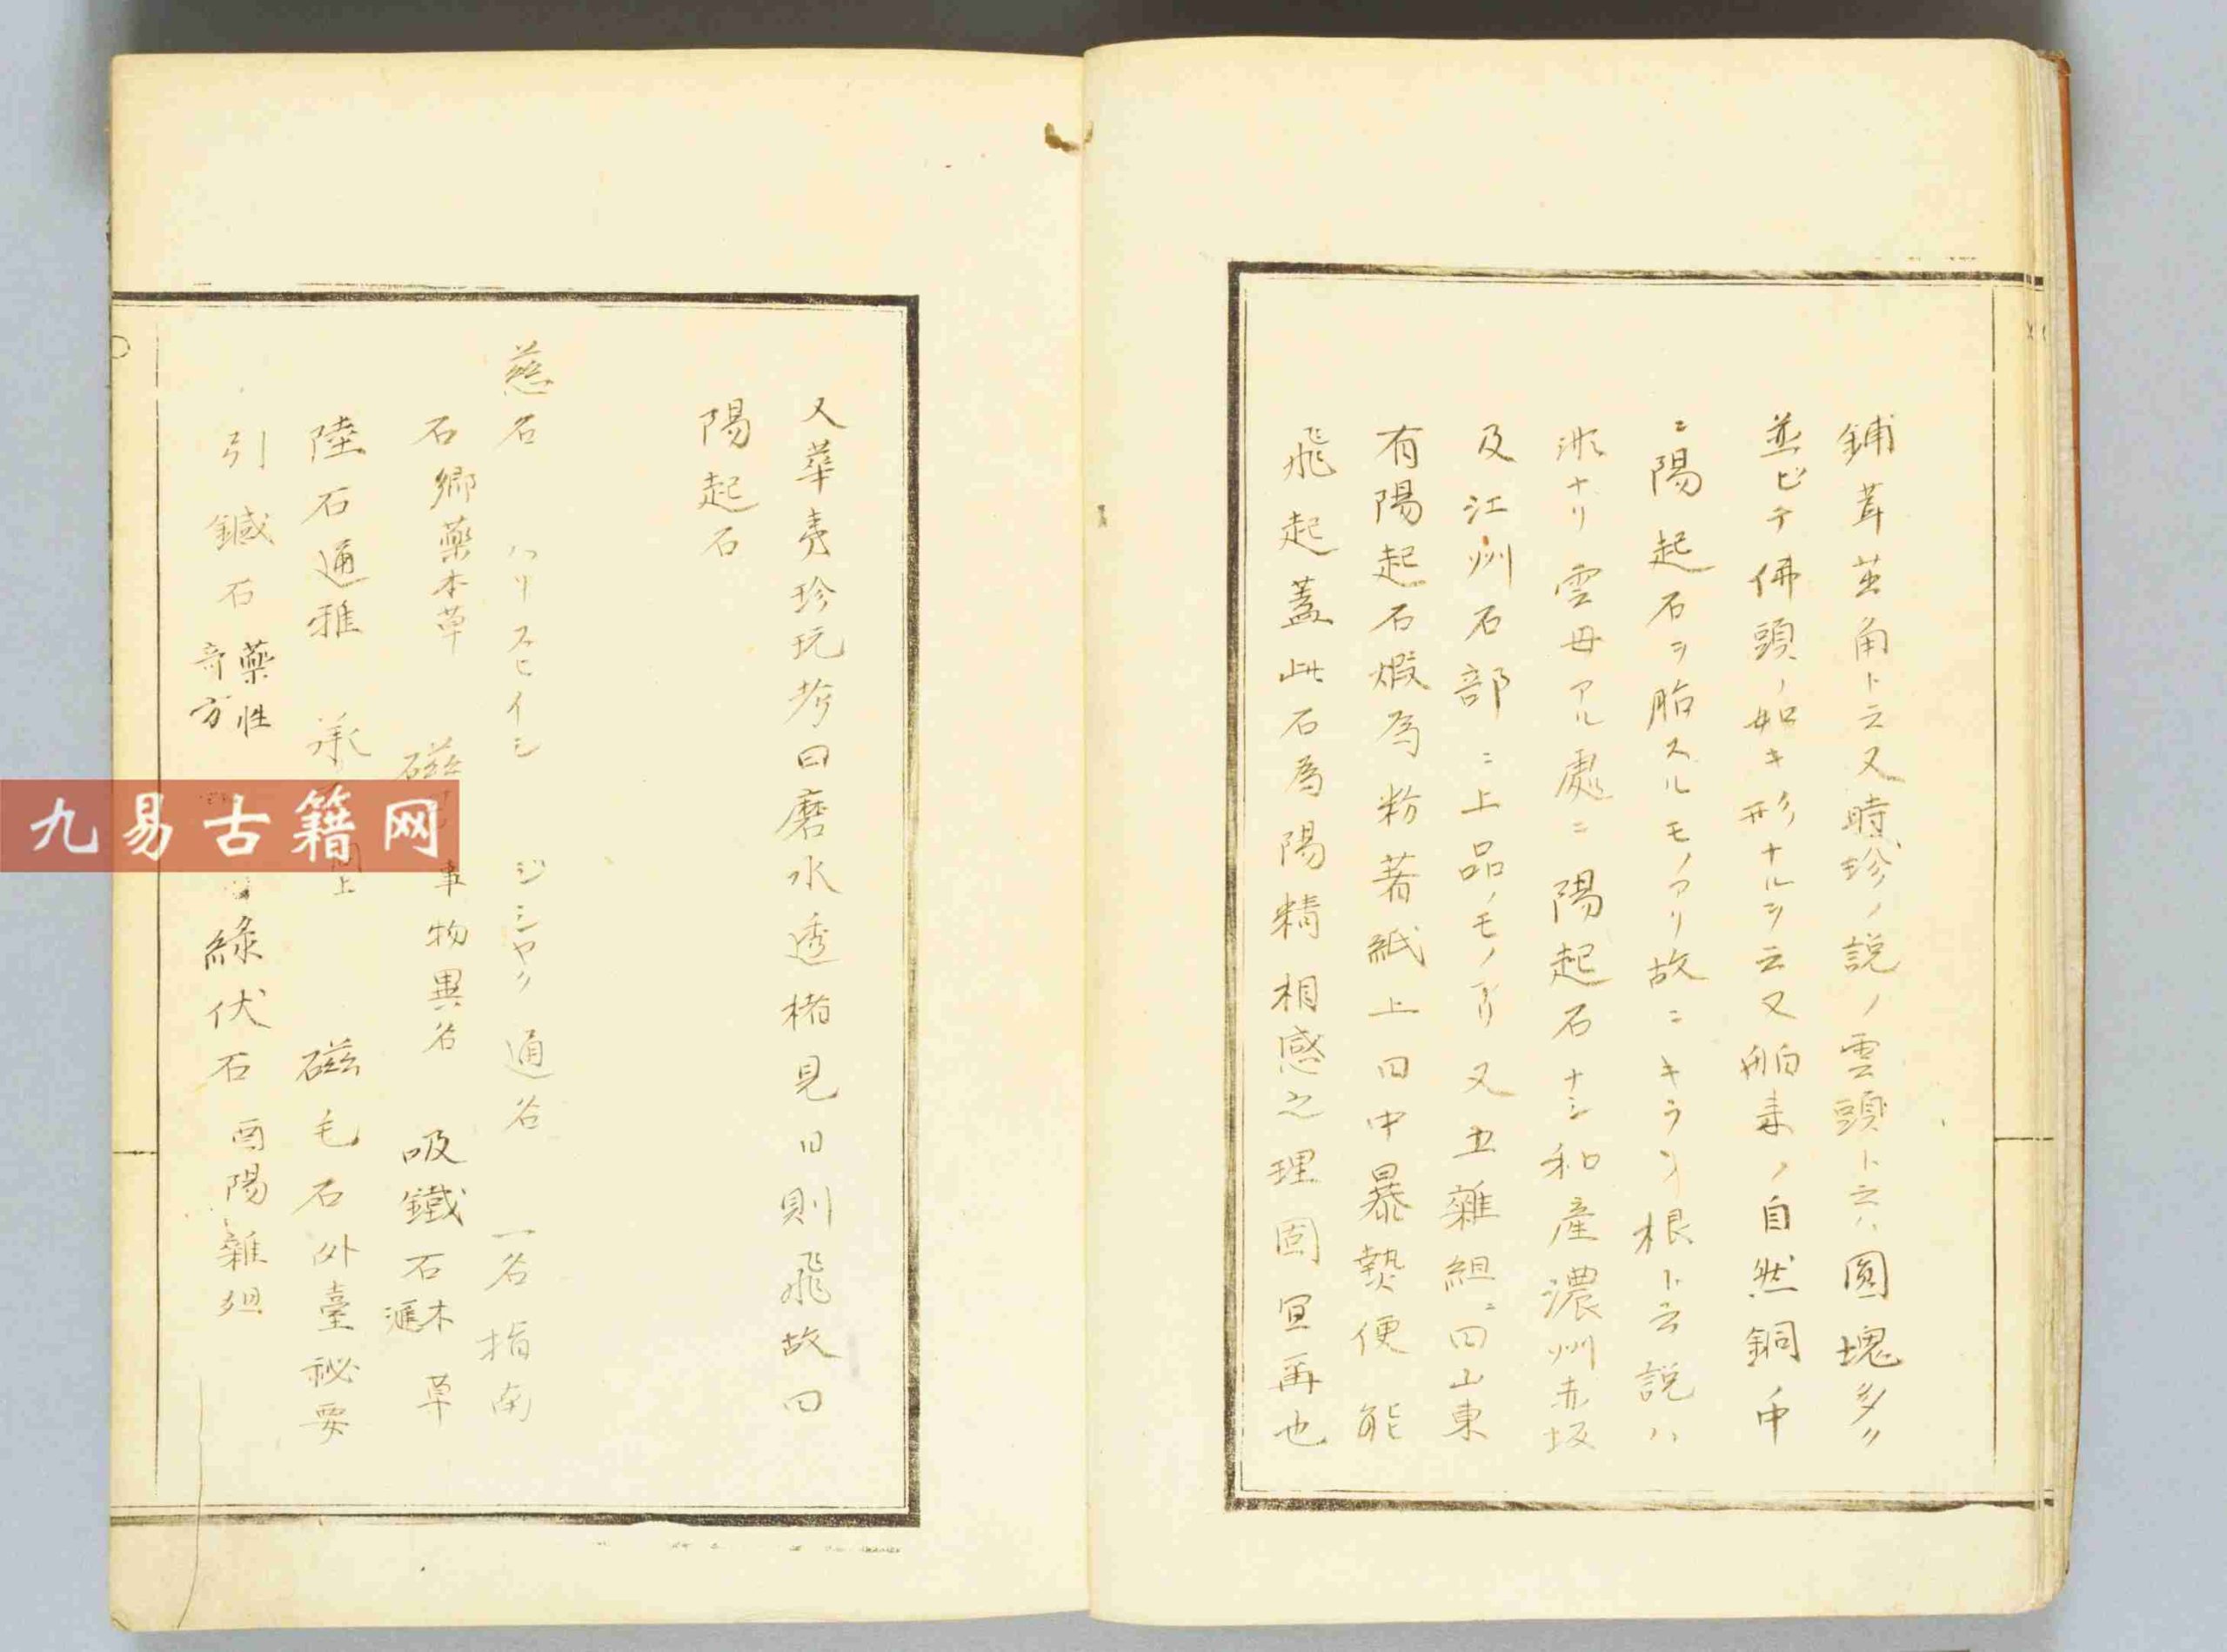 鋪茸茁角ト云又時珍ノ說ノ雲頭ト云ハ圓塊多ク
並ビテ佛頭ノ如キ形ナルヲ云又舶来ノ自然銅中
ニ陽起石ヲ胎スルモノアリ故ニキララノ根ト云説ハ
非ナリ雲母アル處ニ陽起石ナシ和產濃州赤坂
及江州石部ニ上品ノモノアリ又五雜組ニ曰山東
有陽起石煆為粉著紙上日中暴熱便能
飛起蓋此石為陽精相感之理固宜再也
又華夷珍玩考曰磨水透楮見日則飛故曰
陽起石
慈石 ハリスヒイシ ジシヤク 通名 一名指南
石 郷藥本草 磁 事物異名 吸鐵石 本草滙
陸石 通雅 承 同上 磁毛石 外臺秘要
引鍼石 藥性奇方 綠伏石 酉陽雜俎
九易古籍网